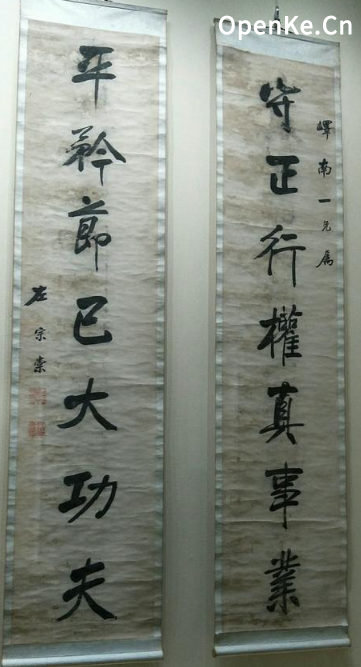 OpenKe.Cn
嶧南一兄屬
守正行權真事業
平矜節己大功夫
左宗棠